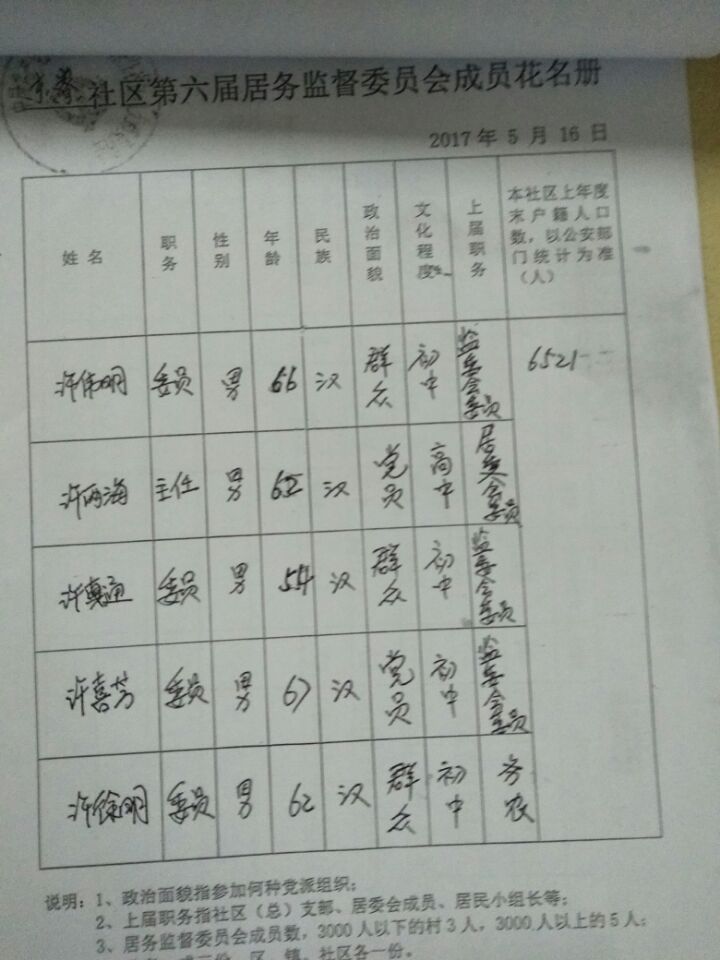 社区第六届居务监督委员会成员花名册
2017年5月16日
姓名 职务 性别 年龄 民族 政治面貌 文化程度 上届职务 本社区上年度末户籍人口数，以公安部门统计为准（人）
许伟明 委员 男 66 汉 群众 初中 监委会委员 6521
许两海 主任 男 65 汉 党员 高中 居委会委员
许真通 委员 男 54 汉 群众 初中 监委会委员
许喜芳 委员 男 67 汉 党员 初中 监委会委员
许徐明 委员 男 62 汉 群众 初中 务农
说明：1、政治面貌指参加何种党派组织；
2、上届职务指社区（总）支部、居委会成员、居民小组长等；
3、居务监督委员会成员数，3000人以下的村3人，3000人以上的5人；
区、镇、社区各一份。